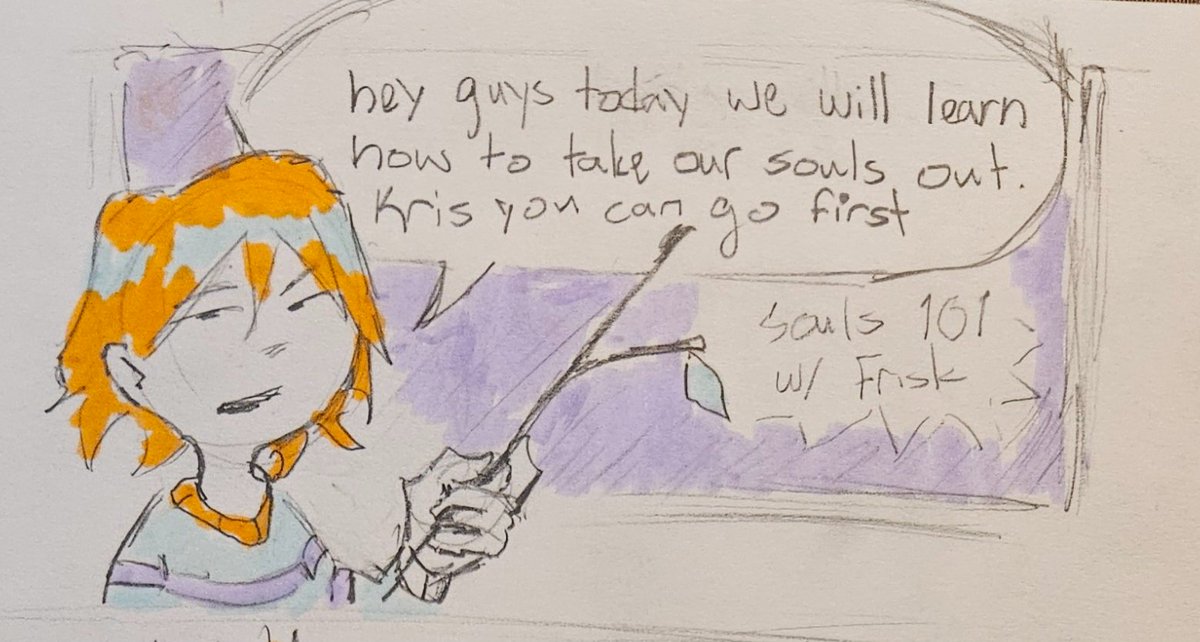 hey guys today we will learn
how to take our souls out.
Kris you can go first
souls 101
w/ Frisk